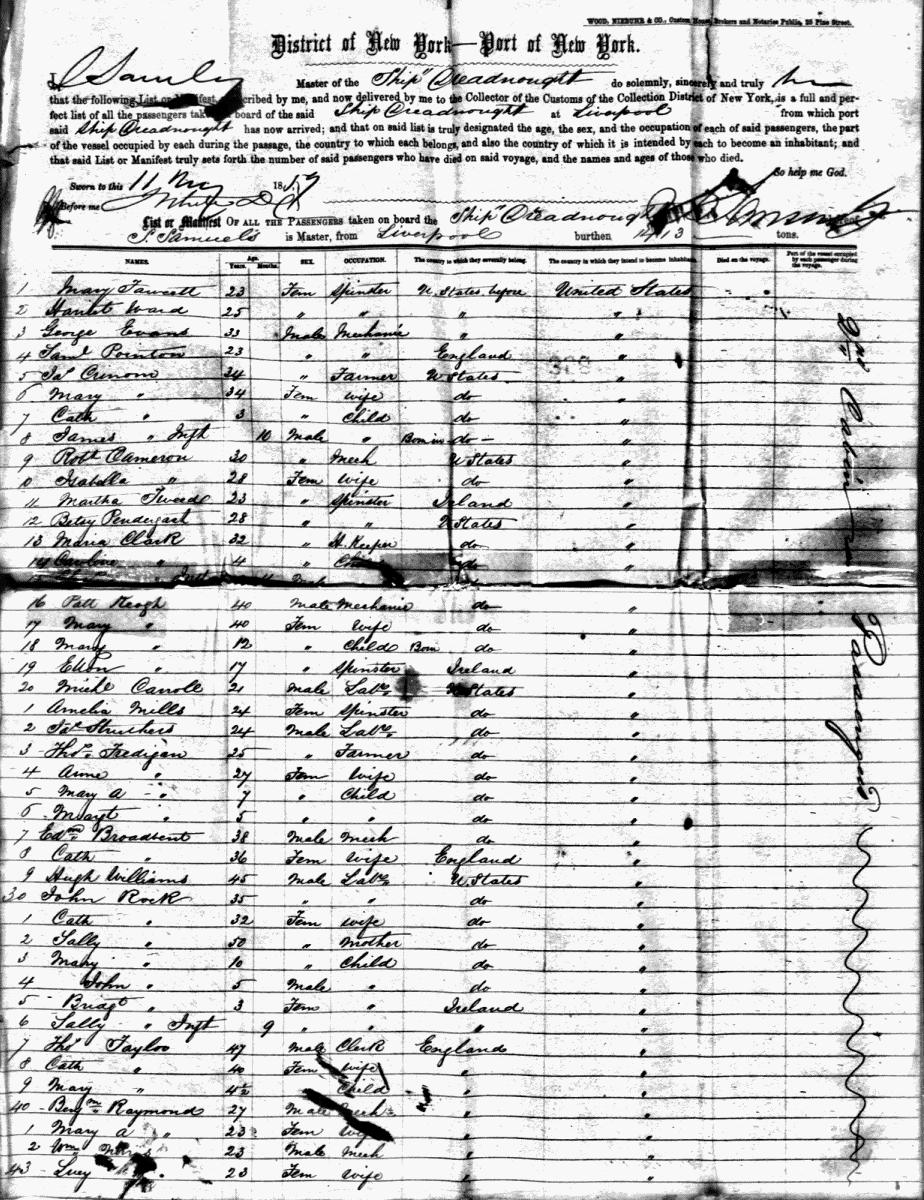 WOOD, NIEBUHR & CO., Custom House Brokers and Notaries Public, 25 Pine Street.
District of New York—Port of New York.
I, Master of the Ship Dreadnought do solemnly, sincerely and truly
that the following List or Manifest, subscribed by me, and now delivered by me to the Collector of the Customs of the Collection District of New York, is a full and per-
fect list of all the passengers taken on board of the said Ship Dreadnought at Liverpool from which port
said Ship Dreadnought has now arrived; and that on said list is truly designated the age, the sex, and the occupation of each of said passengers, the part
of the vessel occupied by each during the passage, the country to which each belongs, and also the country of which it is intended by each to become an inhabitant; and
that said List or Manifest truly sets forth the number of said passengers who have died on said voyage, and the names and ages of those who died.
So help me God.
Sworn to this 11 185
Before me
List or Manifest OF ALL THE PASSENGERS taken on board the Ship Dreadnought
S. Samuels is Master, from Liverpool burthen 1413 tons.
NAMES. Age. Years. Months. SEX. OCCUPATION. The country to which they severally belong. The country in which they intend to become inhabitants. Died on the voyage. Part of the vessel occupied by each passenger during the voyage.
1 Mary Fawcett 23 Fem Spinster U. States before United States
2 Harriet Ward 25 " " " "
3 George Evans 33 Male Mechanic " "
4 Saml Pointon 23 " " England "
5 Jas 34 " Farmer U States "
6 Mary " 34 Fem Wife do "
7 Cath " 3 " Child do "
8 James " Inft 10 Male " Born in do "
9 Robt Cameron 30 " Mech U States "
10 Isabella " 28 Fem Wife do "
11 Martha Tweed 23 " Spinster Ireland "
12 Betsy Pendergast 28 " " U States "
13 Maria Clark 32 " H. Keeper do "
14 Caroline " 4 " do
16 Patt Keogh 40 Male Mechanic do "
17 Mary " 40 Fem Wife do "
18 Mary " 12 " Child Born do "
19 Ellen " 17 " Spinster Ireland "
20 Michl Carroll 21 Male Labr U States "
1 Amelia Mills 24 Fem Spinster do "
2 Jas Struthers 24 Male Labr do "
3 Thos Fredigan 25 " Farmer do "
4 Anne " 27 Fem Wife do "
5 Mary A " 7 " Child do "
6 Margt " 5 " " do "
7 Edmd Broadbent 38 Male Mech do "
8 Cath " 36 Fem Wife England "
9 Hugh Williams 45 Male Labr U States "
30 John Rock 35 " " do "
1 Cath " 32 Fem Wife do "
2 Sally " 50 " Mother do "
3 Mary " 10 " Child do "
4 John " 5 Male " do "
5 Bridgt " 3 Fem " Ireland "
6 Sally " Inft 9 " " " "
7 Thos Taylor 47 Male Clerk England "
8 Cath " 40 Fem Wife " "
9 Mary " 4½ Child " "
40 Benjm Raymond 27 Male Mech " "
1 Mary A " 23 Fem Wife " "
2 Wm 23 Male Mech " "
43 Lucy " 23 Fem Wife " "
2nd Cabin Passengers